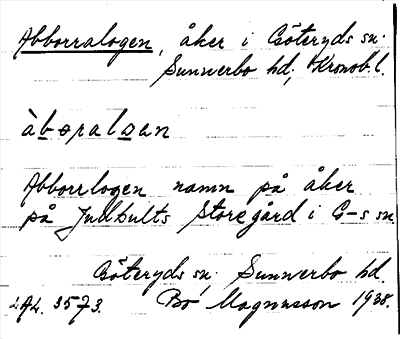 Abborralogen, åker i Göteryds sn.
Sunnerbo hd, Kronob. l.
àbɷralɷan
Abborrlogen namn på åker
på Julhults Storegård i G-s sn.
Göteryds sn, Sunnerbo hd.
3573. Bo Magnusson 1938.